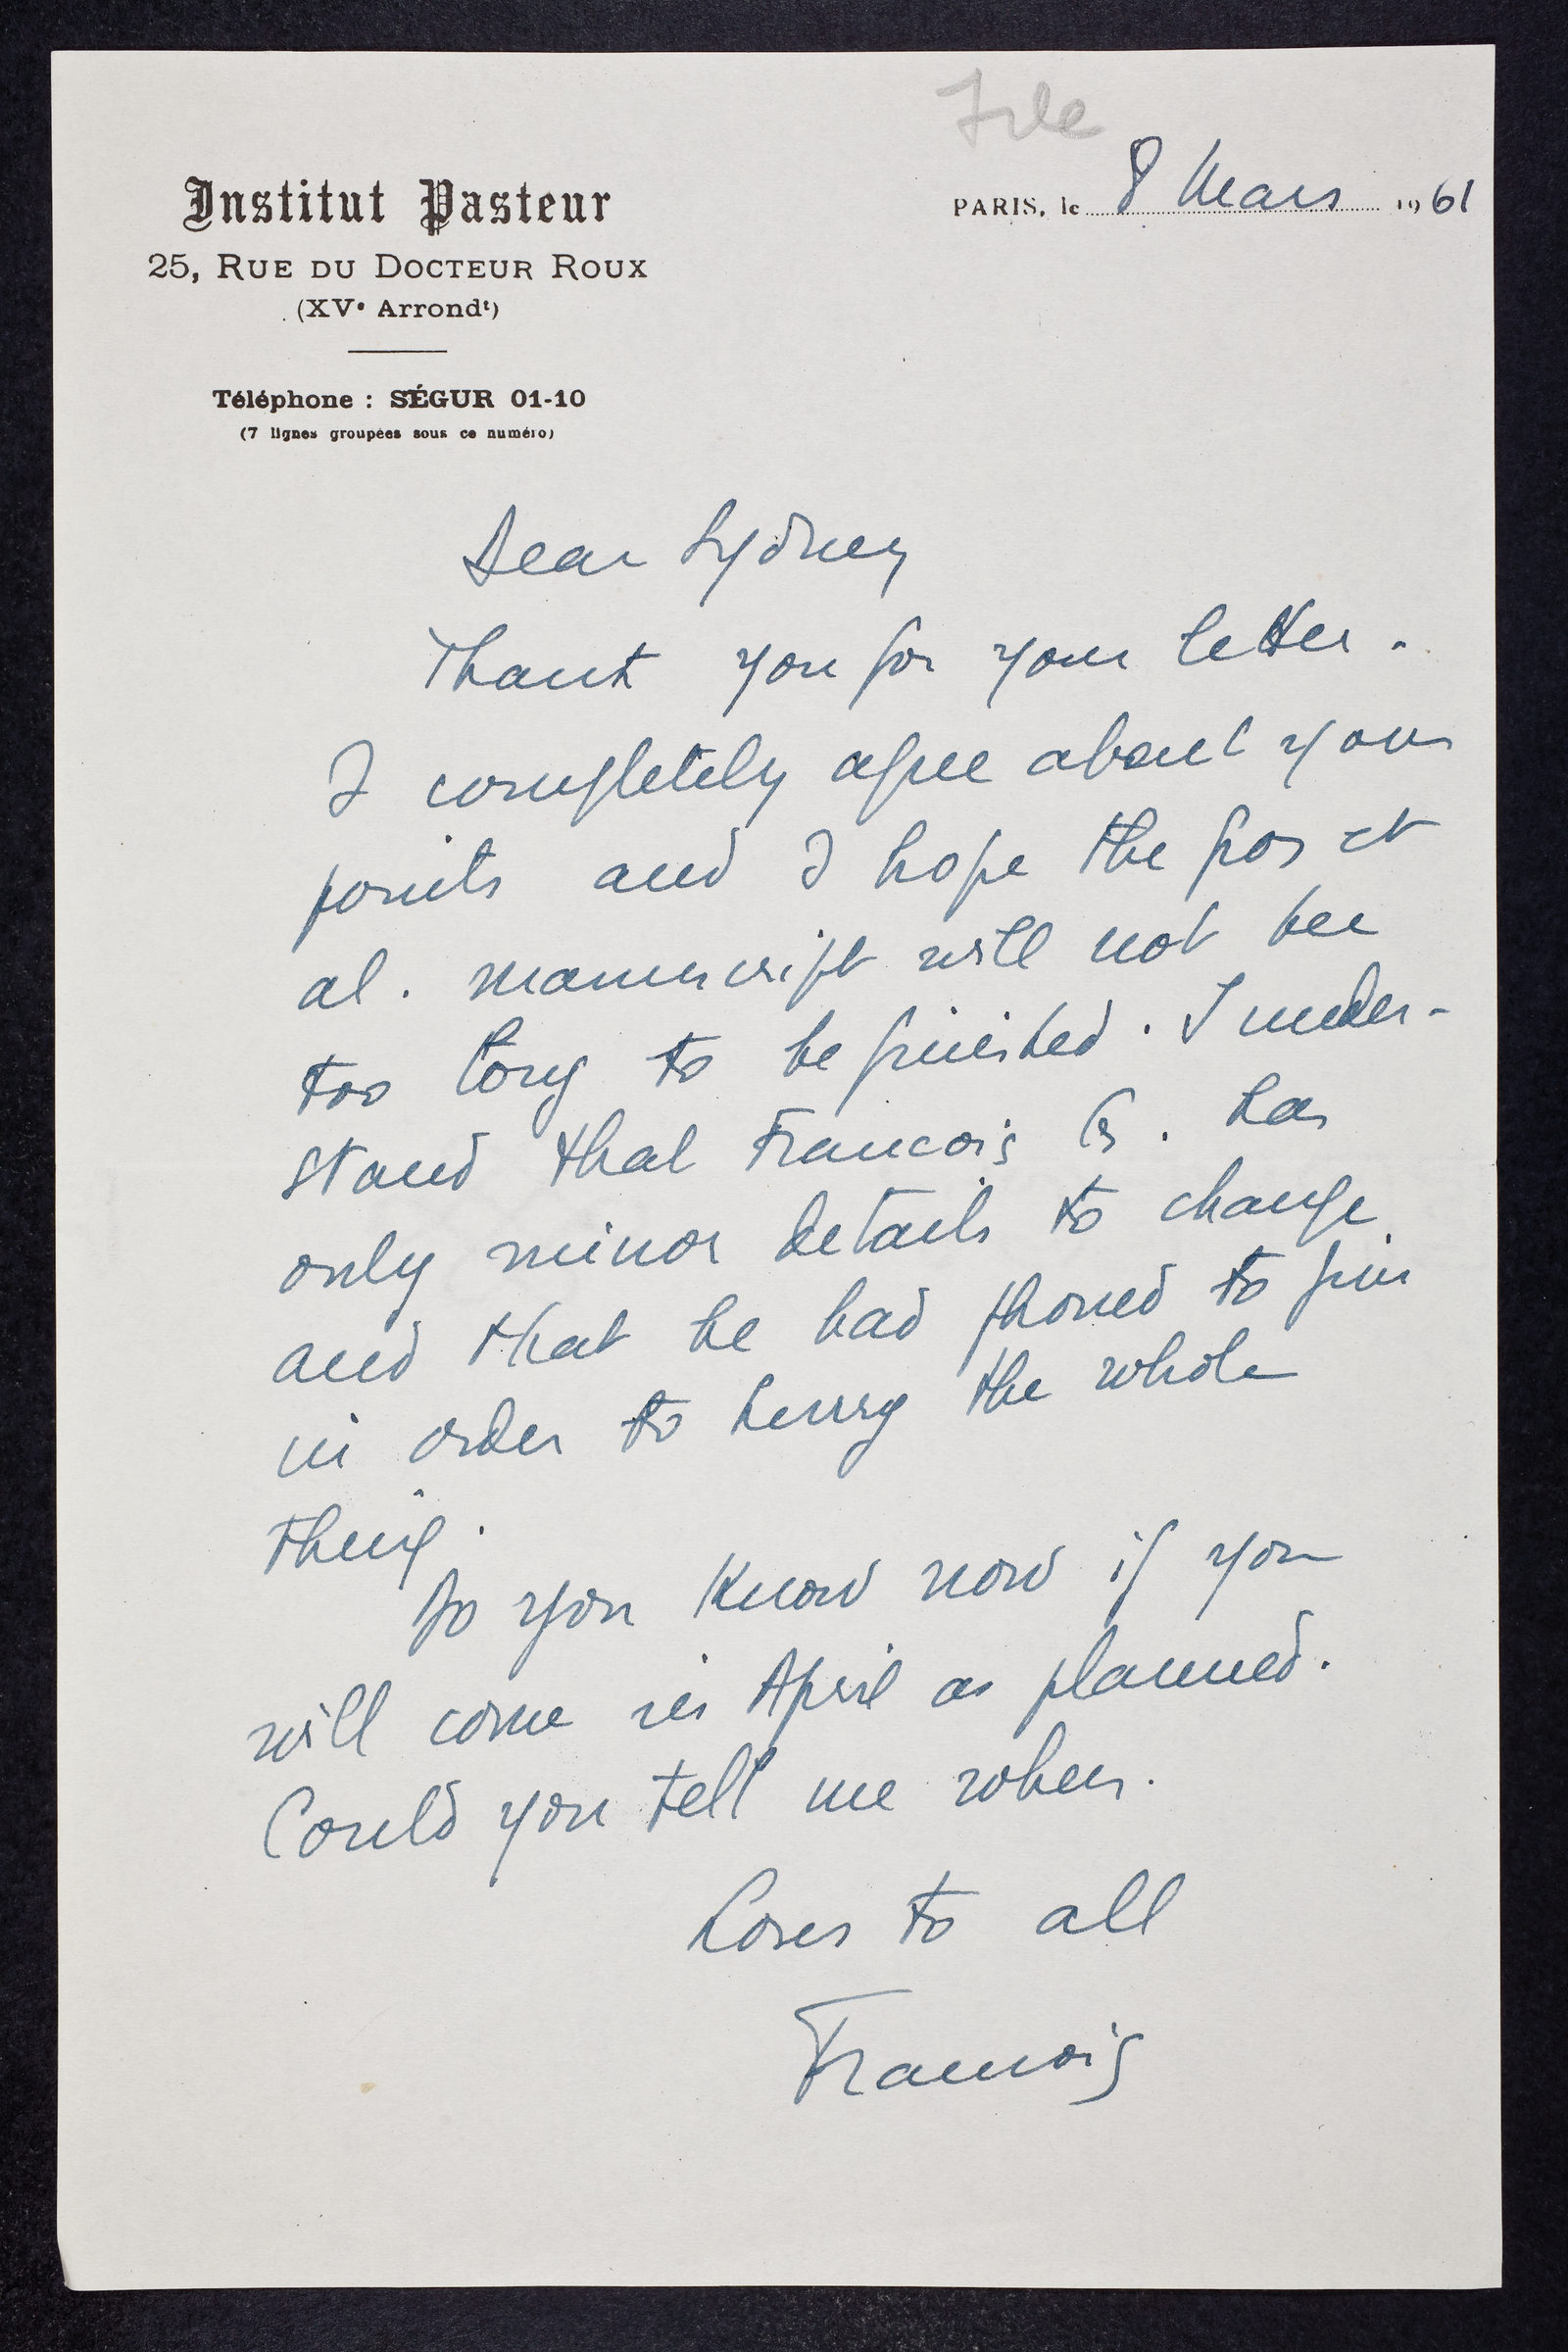 File
Institut Pasteur
25, RUE DU DOCTEUR ROUX
(XVe Arrondt)
Téléphone : SÉGUR 01-10
(7 lignes groupées sous ce numéro)
PARIS, le 8 Mars 1961
Dear Sydney
Thank you for your letter.
I completely agree about your
points and I hope the gros et
al. manuscript will not bee
too long to be finished. I under-
stand that Francois G. has
only minor details to change
and that he had phoned to Jim
in order to hurry the whole
thing.
Do you know now if you
will come in April as planned.
Could you tell me when.
Loves to all
Francois